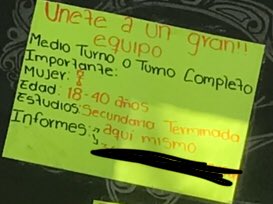 Unete a un gran!!
equipo
Medio Turno o Turno Completo
Importante:
Mujer:
Edad: 18-40 años
Estudios: Secundaria Terminada
Informes: aquí mismo